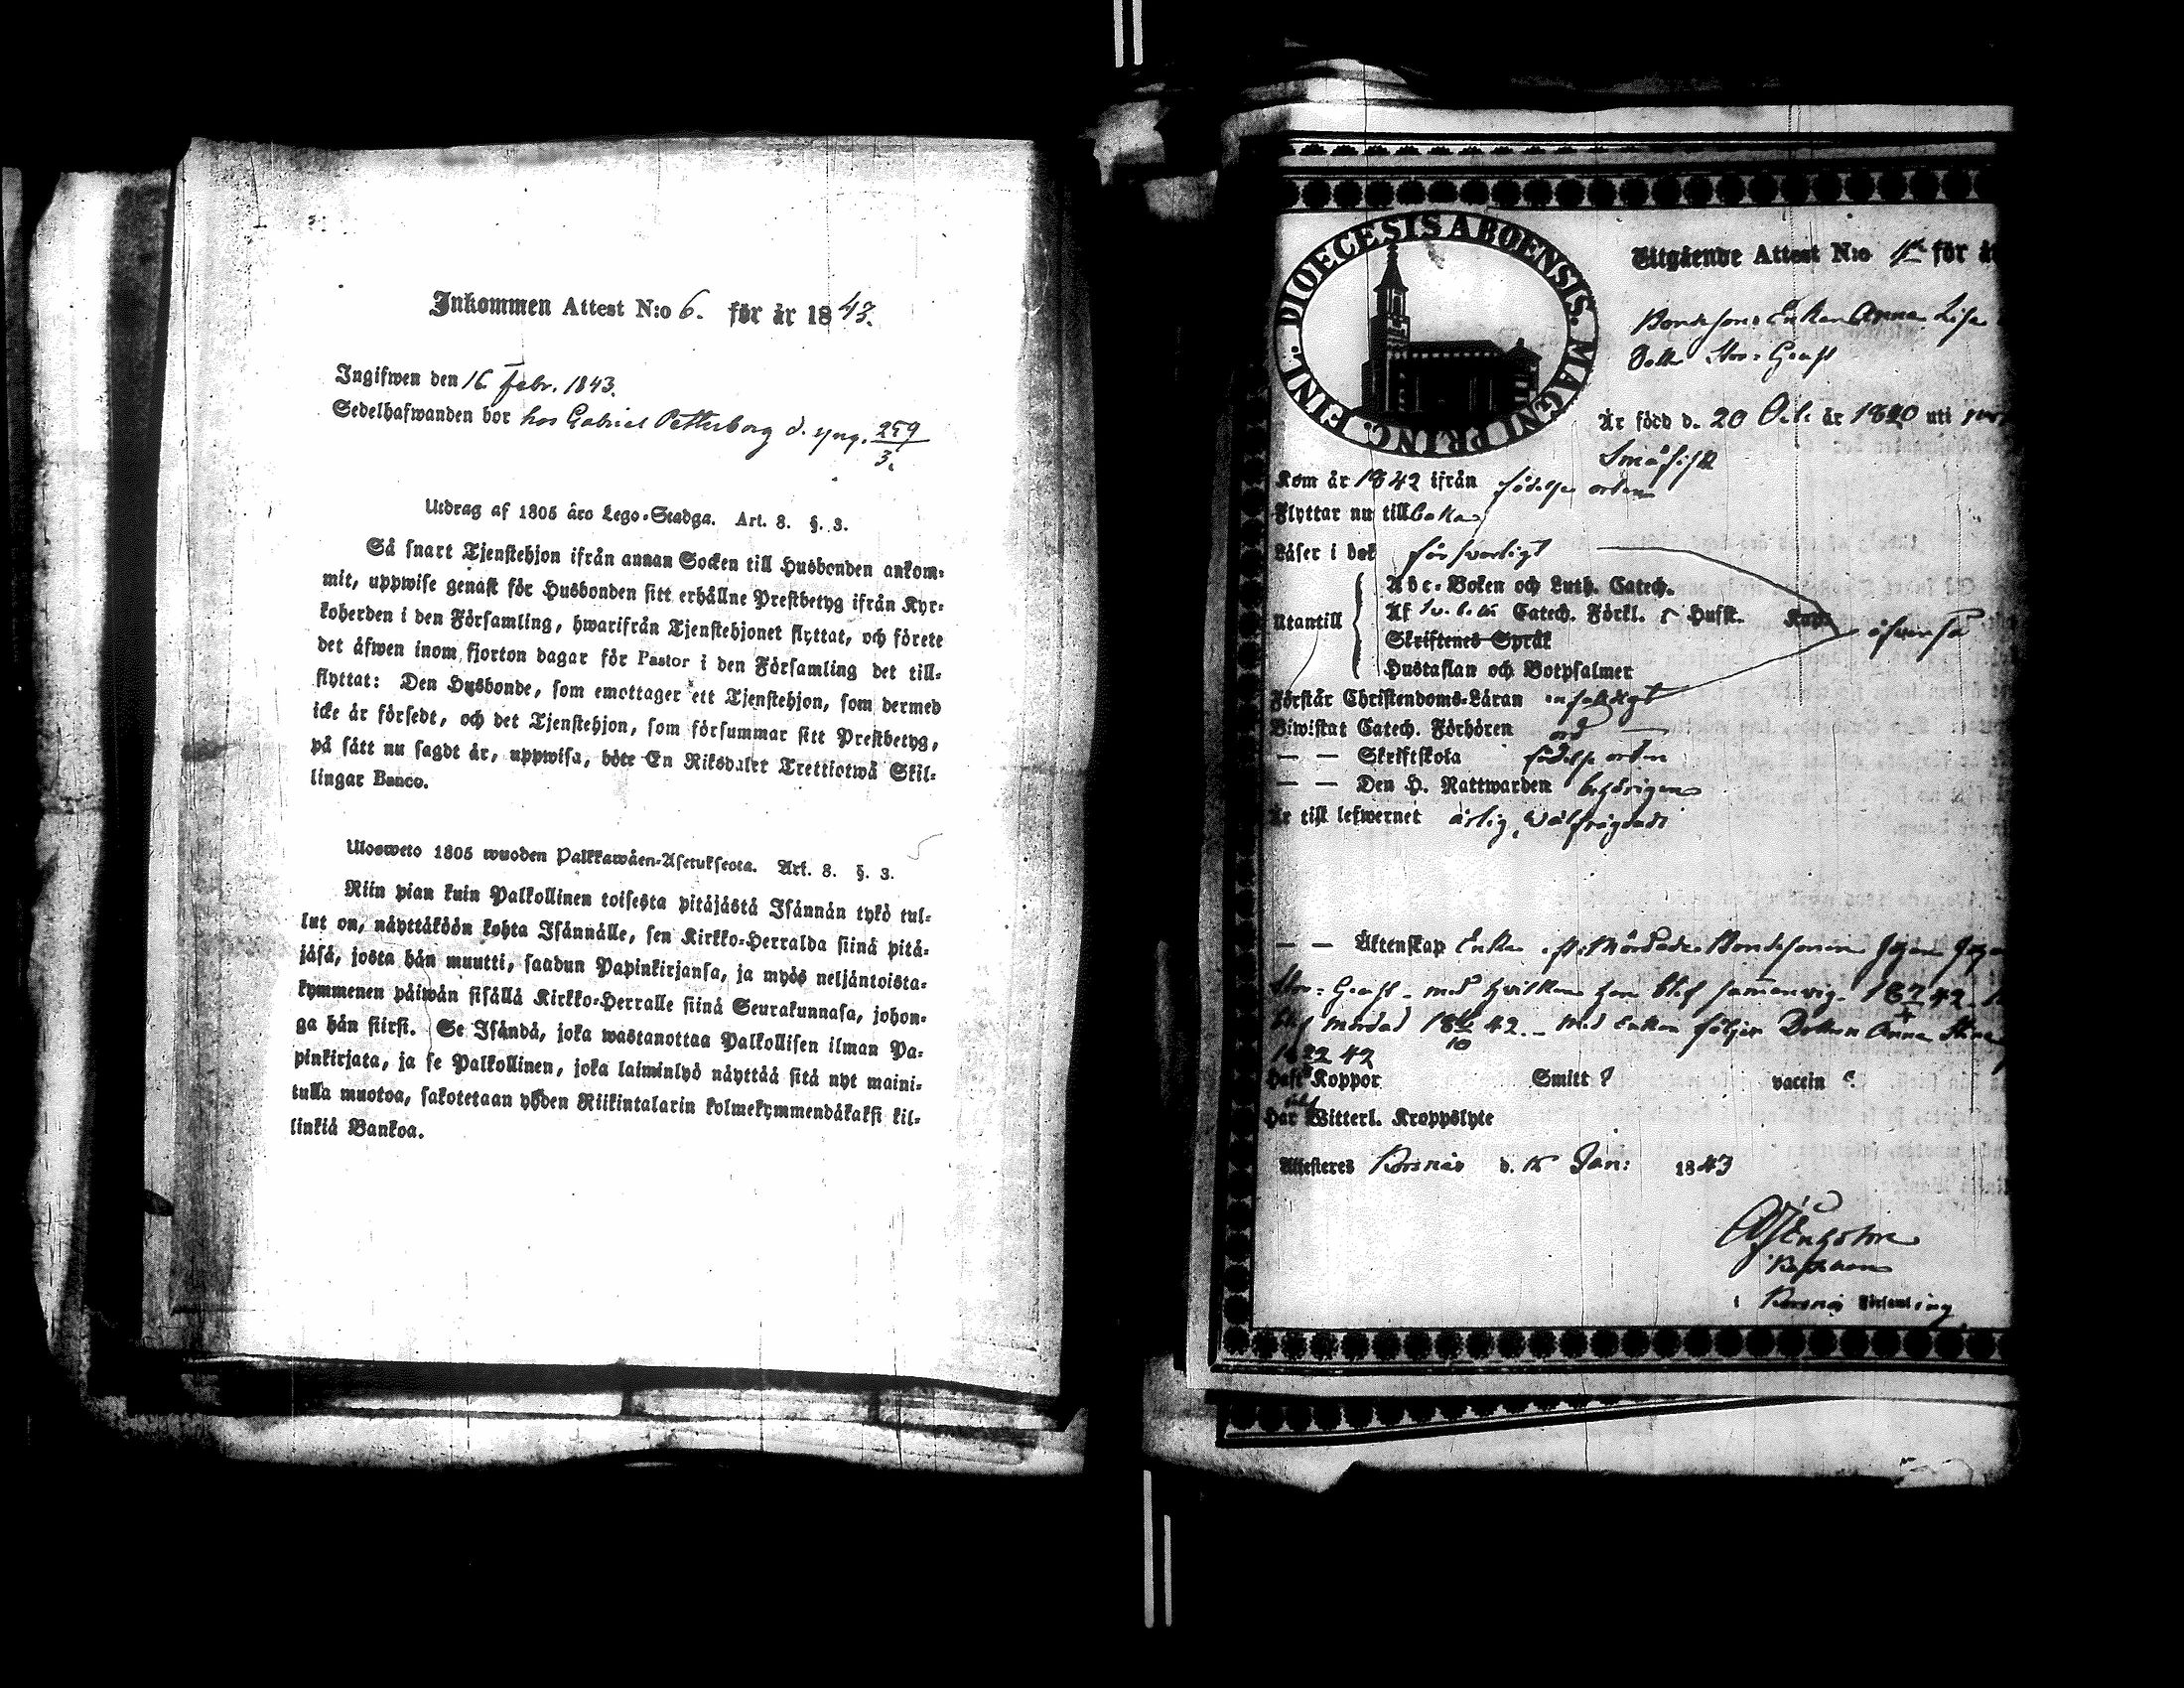 Inkommen Attest N:o 6. för år 1843.
Ingifwen den 16 Febr. 1843.
Sedelhafwanden bor hos Gabriel Petterborg d. yng. 259
3.
Utdrag af 1805 års Lego-Stadga. Art. 8. §. 3.
Så snart Tjenstehjon ifrån annan Socken till Husbonden ankom-
mit, uppwise genast för Husbonden sitt erhållne Prestbetyg ifrån Kyr-
koherden i den Församling, hwarifrån Tjenstehjonet flyttat, och förete
det äfwen inom fjorton dagar för Pastor i den Församling det till-
flyttat: Den Husbonde, som emottager ett Tjenstehjon, som dermed
icke är försedt, och det Tjenstehjon, som försummar sitt Prestbetyg,
på sätt nu sagdt är, uppwisa, böte En Riksdaler Trettiotwå Skil-
lingar Banco.
Ulosweto 1805 wuoden Palkkawäen-Asetuksesta. Art. 8. §. 3.
Niin pian kuin Palkollinen toisesta pitäjästä Isännän tykö tul-
lut on, näyttäköön kohta Isännälle, sen Kirkko-Herralda siinä pitä-
jäsä, josta hän muutti, saadun Papinkirjansa, ja myös neljäntoista-
kymmenen päiwän sisällä Kirkko-Herralle siinä Seurakunnasa, johon-
ga hän siirsi. Se Isändä, joka wastanottaa Palkollisen ilman Pa-
pinkirjata, ja se Palkollinen, joka laiminlyö näyttää sitä nyt maini-
tulla muotoa, sakotetaan yhden Riikintalarin kolmekymmendäkaksi kil-
linkiä Bankoa.
DIOECESIS ABOENSIS. MAGNI PRINC. FINL.
Utgående Attest N:o för
Bondesons Enkan Anna Lisa
Är född d. 20 Oct. år 1820 uti
Kom år 1842 ifrån födelse orten
Flyttar nu tillbaka
Läser i bok försvarligt
Abc-Boken och Luth. Catech.
Utantill Af Catech. Förkl. Husst. äfvenså
Skriftenes Språk
Hustaflan och Botpsalmer
Förstår Christendoms-Läran enfaldigt
Biwistat Catech. Förhören
— — Skriftskola födelse orten
— — Den H. Nattwarden behörigen
Är till lefwernet ärlig, välfrägdad
— — Äktenskap Enka Mördade Bondesonen Johan
med hvilken hon blef sammanvigd 42
mördad 42. — Med enkan följer Dottren Anna Stina
42
Haft Koppor Smitt ? vaccin ?
Har Witterl. Kroppslyte
Attesteres d. Jan: 1843
i Församling